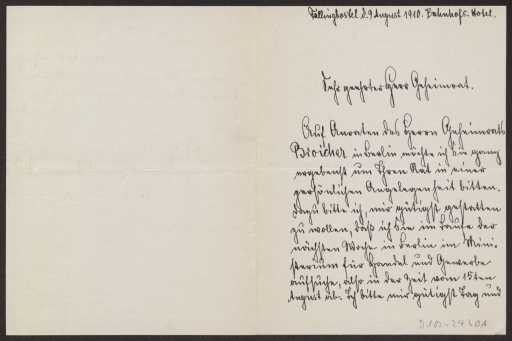 Fallingbostel d. 9 August 1910. Bahnhofs-Hotel.
Sehr geehrter Herr Geheimrat.
Auf Anraten des Herrn Geheimrats
Broicher in Berlin möchte ich Sie ganz
ergebenst um Ihren Rat in einer
persönlichen Angelegenheit bitten.
Dazu bitte ich, mir gütigst gestatten
zu wollen, daß ich Sie im Laufe der
nächsten Woche in Berlin im Mini-
sterium für Handel und Gewerbe
aufsuche, also in der Zeit vom 15ten
August ab. Ich bitte mir gütigst Tag und